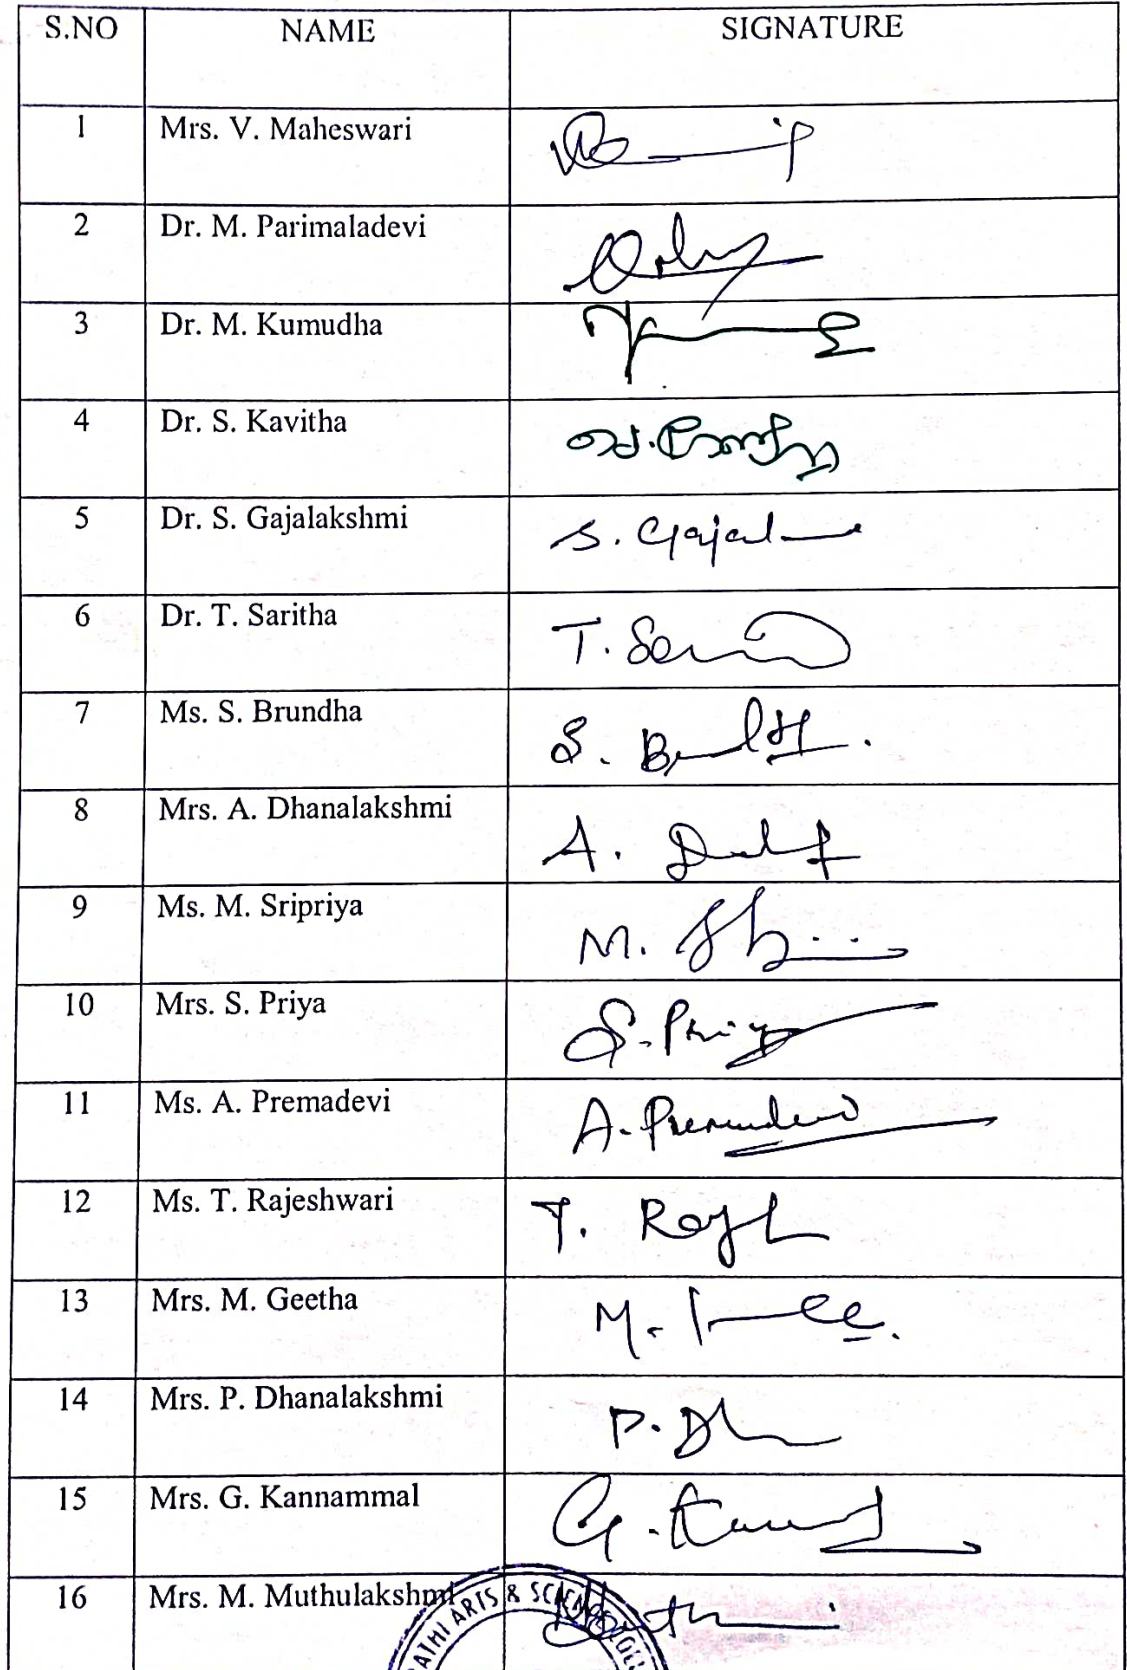 S.NO NAME SIGNATURE
1 Mrs. V. Maheswari
2 Dr. M. Parimaladevi
3 Dr. M. Kumudha
4 Dr. S. Kavitha
5 Dr. S. Gajalakshmi S. Gajal
6 Dr. T. Saritha T.
7 Ms. S. Brundha S.
8 Mrs. A. Dhanalakshmi A.
9 Ms. M. Sripriya M.
10 Mrs. S. Priya S. Priya
11 Ms. A. Premadevi A. Premadevi
12 Ms. T. Rajeshwari T.
13 Mrs. M. Geetha M.
14 Mrs. P. Dhanalakshmi P.
15 Mrs. G. Kannammal G.
16 Mrs. M. Muthulakshmi
ARTS & SCIENCE